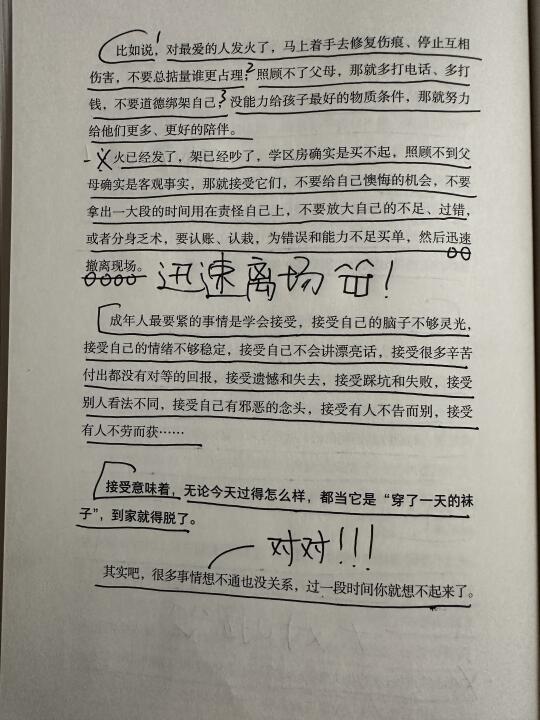 比如说，对最爱的人发火了，马上着手去修复伤痕、停止互相
伤害，不要总掂量谁更占理；照顾不了父母，那就多打电话、多打
钱，不要道德绑架自己；没能力给孩子最好的物质条件，那就努力
给他们更多、更好的陪伴。
火已经发了，架已经吵了，学区房确实是买不起，照顾不到父
母确实是客观事实，那就接受它们，不要给自己懊悔的机会，不要
拿出一大段的时间用在责怪自己上，不要放大自己的不足、过错，
或者分身乏术，要认账、认栽，为错误和能力不足买单，然后迅速
撤离现场。
迅速离场！
成年人最要紧的事情是学会接受，接受自己的脑子不够灵光，
接受自己的情绪不够稳定，接受自己不会讲漂亮话，接受很多辛苦
付出都没有对等的回报，接受遗憾和失去，接受踩坑和失败，接受
别人看法不同，接受自己有邪恶的念头，接受有人不告而别，接受
有人不劳而获……
接受意味着，无论今天过得怎么样，都当它是“穿了一天的袜
子”，到家就得脱了。
对对！！！
其实吧，很多事情想不通也没关系，过一段时间你就想不起来了。